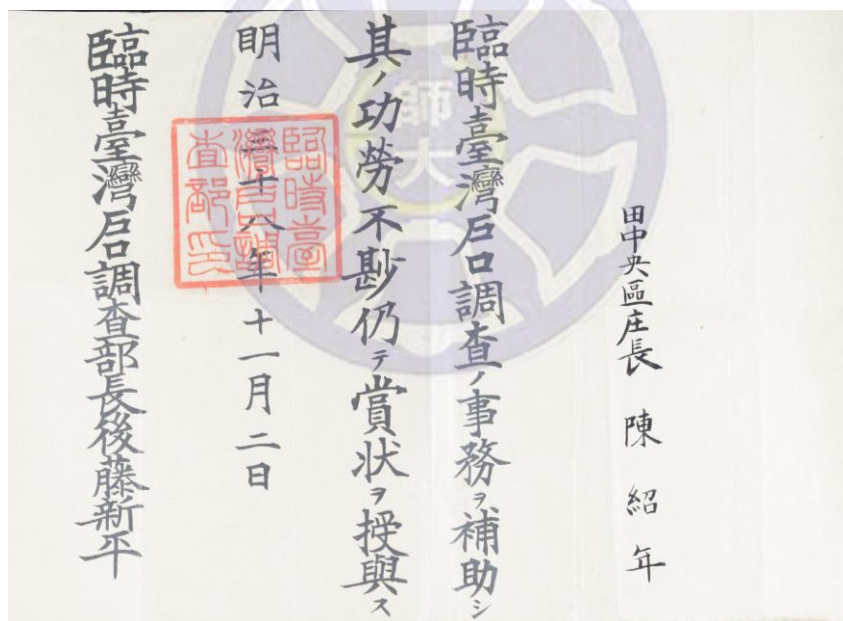 田中央區庄長 陳紹年
臨時臺灣戶口調查ノ事務ヲ補助シ
其ノ功勞不尠仍テ賞状ヲ授與ス
明治三十八年十一月二日
臨時臺灣戶口調查部長後藤新平
臨時臺
灣戶口調
查部印
師大